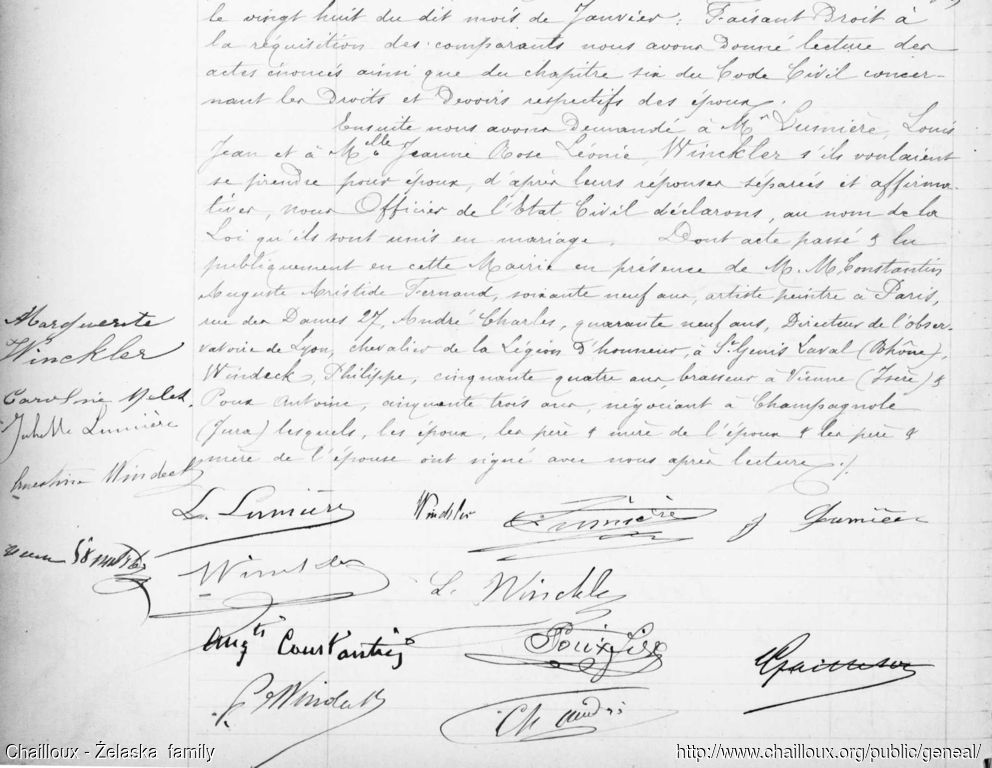 le vingt huit du dit mois de Janvier : Faisant Droit à
la réquisition des comparants nous avons Donné lecture des
actes énoncés ainsi que du chapitre six du Code Civil concer-
nant les Droits et Devoirs respectifs des époux.
Ensuite nous avons Demandé à Mr Lumière, Louis
Jean et à Melle Jeanne Rose Léonie Winckler s'ils voulaient
se prendre pour époux, d'après leurs réponses séparées et affirma-
tives, nous Officier de l'Etat Civil déclarons, au nom de la
Loi qu'ils sont unis en mariage. Dont acte passé & lu
publiquement en cette Mairie en présence de M.M. Constantin
Auguste Aristide Fernand, soixante neuf ans, artiste peintre à Paris,
rue des Dames 27, André Charles, quarante neuf ans, Directeur de l'obser-
vatoire de Lyon, chevalier de la Légion d'honneur, à St Genis Laval (Rhône),
Windeck, Philippe, cinquante quatre ans, brasseur à Vienne (Isère) &
Poux Antoine, cinquante trois ans, négociant à Champagnole
(Jura) lesquels, les époux, les père & mère de l'époux & les père &
mère de l'épouse ont signé avec nous après lecture ./.
Marguerite
Winckler
Caroline
Juliette Lumière
Ernestine Windeck
L. Lumière Winckler Lumière J Lumière
Winckler L. Winckler
Augte Constantin Poux
P. Windeck Ch André
Chailloux - Żelaska family http://www.chailloux.org/public/geneal/